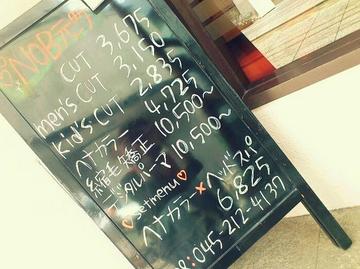 CUT 3,675
men's CUT 3,150
kid's CUT 2,835
ヘナカラー 4,725
縮毛矯正 10,500~
デジタルパーマ 10,500~
♡ setmenu ♡
ヘナカラー×ヘッドスパ
6,825
:045-212-4137